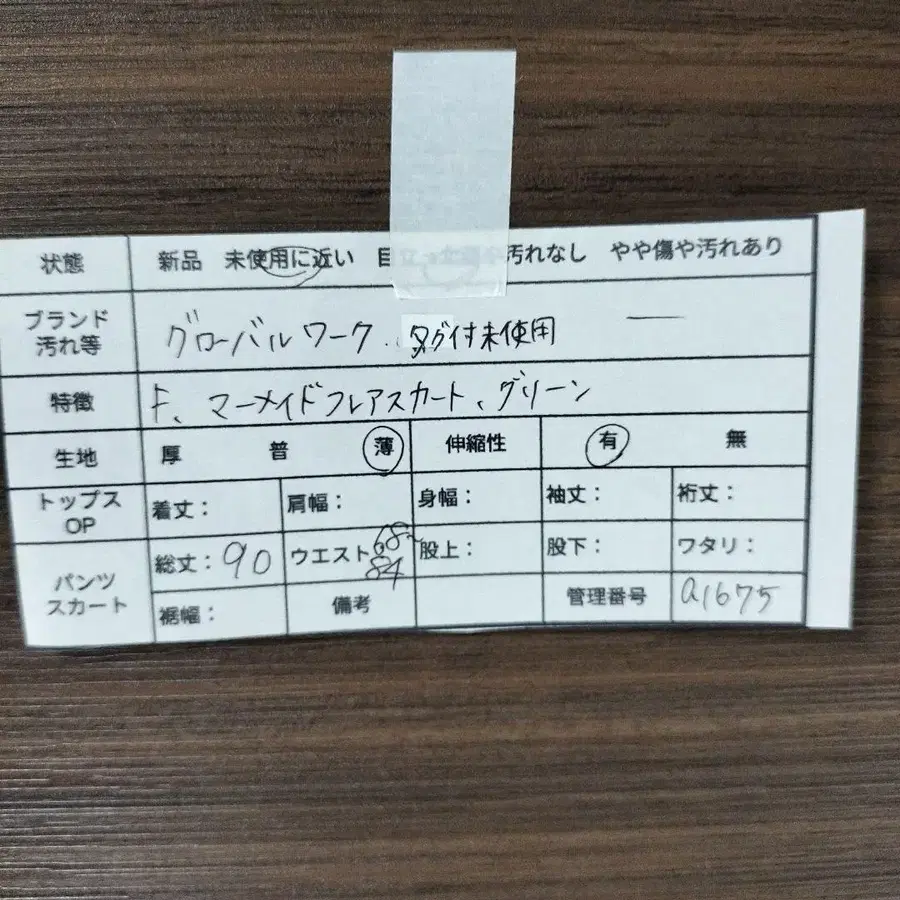 状態 新品 未使用に近い 目立 汚れなし やや傷や汚れあり
ブランド
汚れ等 グローバルワーク、タグ付未使用
特徴 F、マーメイドフレアスカート、グリーン
生地 厚 普 薄 伸縮性 有 無
トップス
OP 着丈: 肩幅: 身幅: 袖丈: 裄丈:
パンツ
スカート 総丈:90 ウエスト:68~
84 股上: 股下: ワタリ:
裾幅: 備考 管理番号 a1675